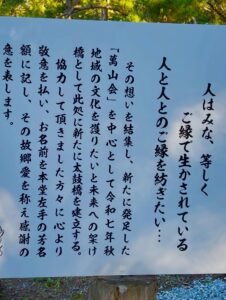 人はみな、等しく
ご縁で生かされている
人と人とのご縁を紡ぎたい…
その想いを結集し、新たに発足した
「萬山会」を中心として令和七年秋
地域の文化を護りたいと未来への架け
橋として此処に新たに太鼓橋を建立する。
協力して頂きました方々に心より
敬意を払い、お名前を本堂左手の芳名
額に記し、その故郷愛を称え感謝の
意を表します。